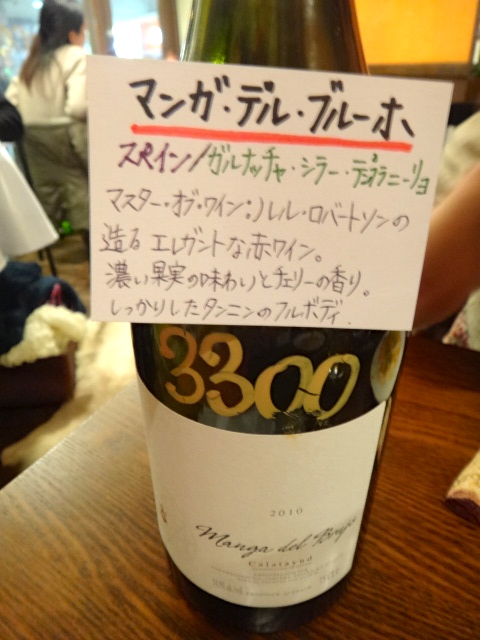 マンガ・デル・ブルーホ
スペイン/ガルナッチャ・シラー・テンプラニーリョ
マスター・オブ・ワイン:ノレル・ロバートソンの
造る エレガントな赤ワイン。
濃い果実の味わいとチェリーの香り。
しっかりしたタンニンのフルボディ.
3300
2010
Manga del Brujo
Calatayud